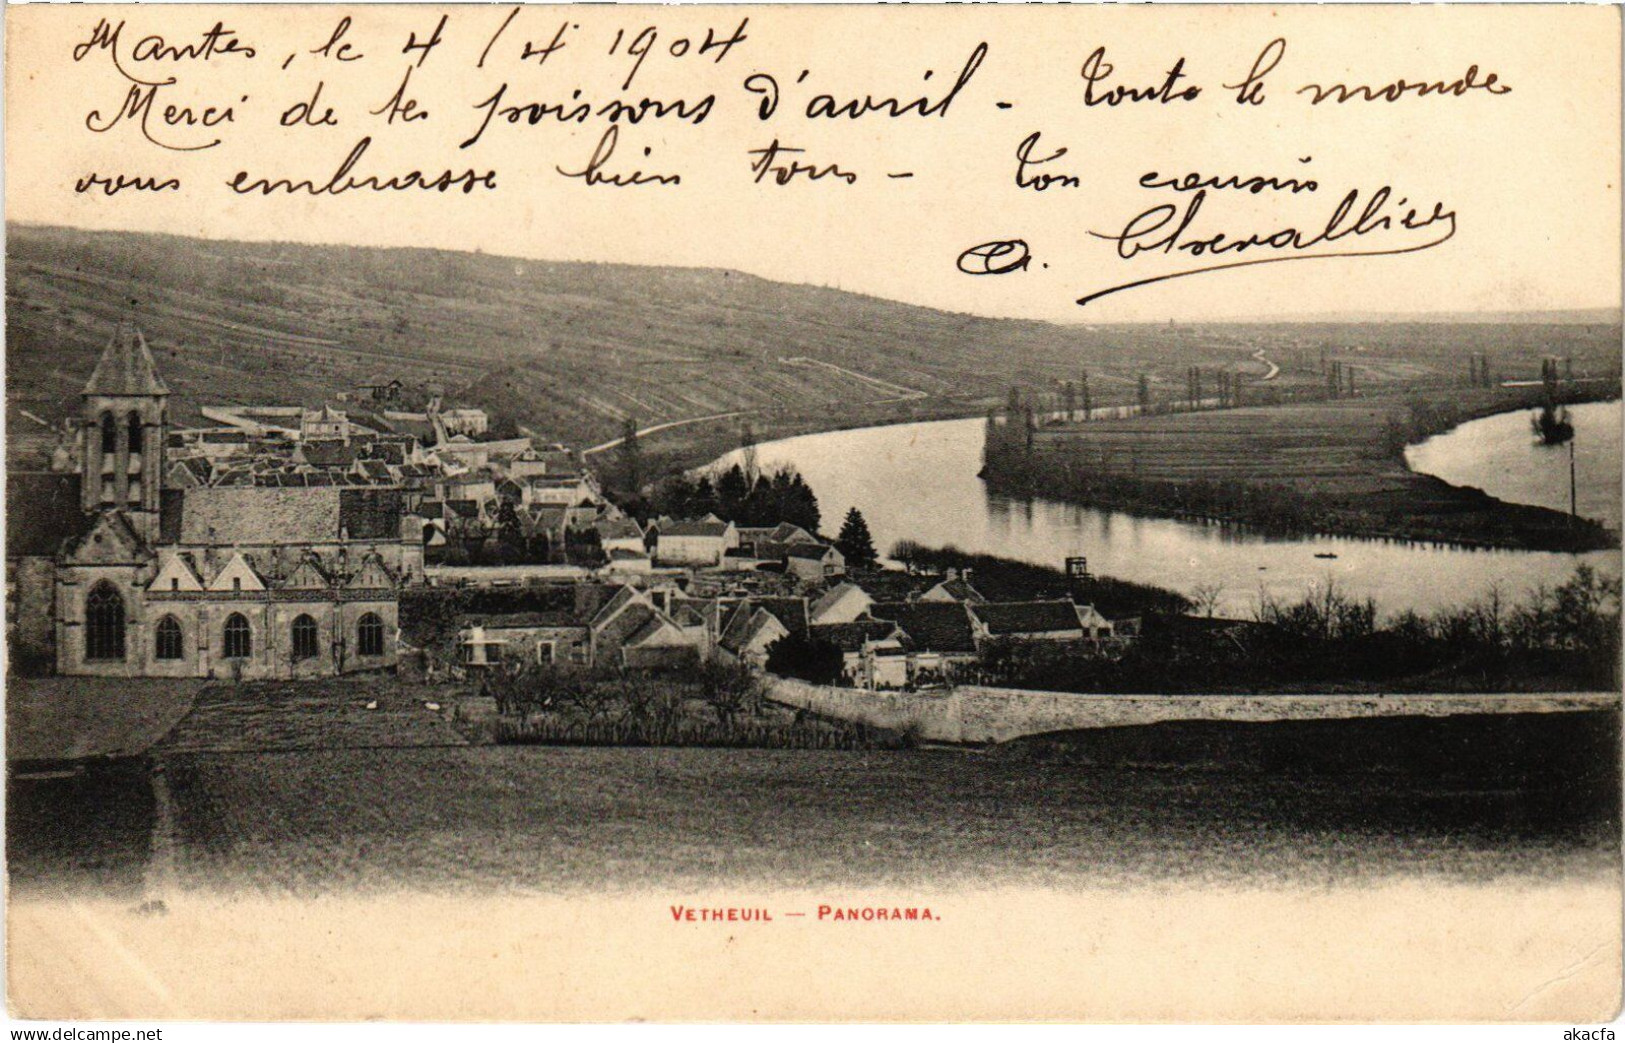 Mantes, le 4/4 1904
Merci de tes poissons d'avril - Toute le monde
vous embrasse bien tous - Ton cousin
A. Chevallier
VETHEUIL — PANORAMA.
delcampe.net
akacfa